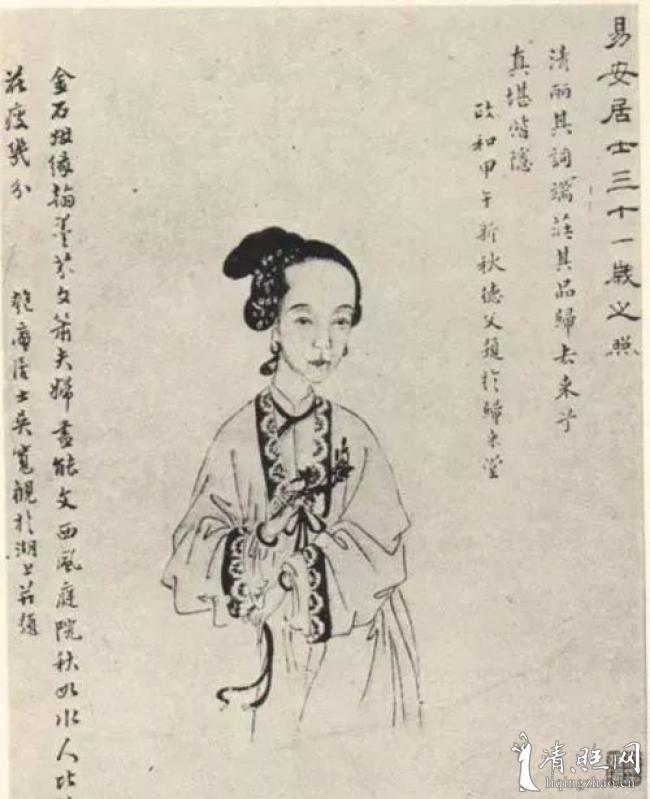 易安居士三十一歲之照
清丽其詞端莊其品歸去來兮
真堪偕隱
政和甲午新秋德父題於歸來堂
金石姻緣翰墨芬文簫夫婦盡能文西風庭院秋如水人比
花瘦幾分
匏庵居士吳寬觀於湖上莊題
清照网
liqingzhao.cn